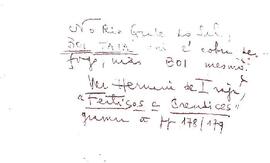 No Rio Gde do Sul,
BOI TATÁ não é cobra de
fogo, mas BOI mesmo.
Ver Hermini de Irajá
"Feitiços e Crendices"
pp 178/179